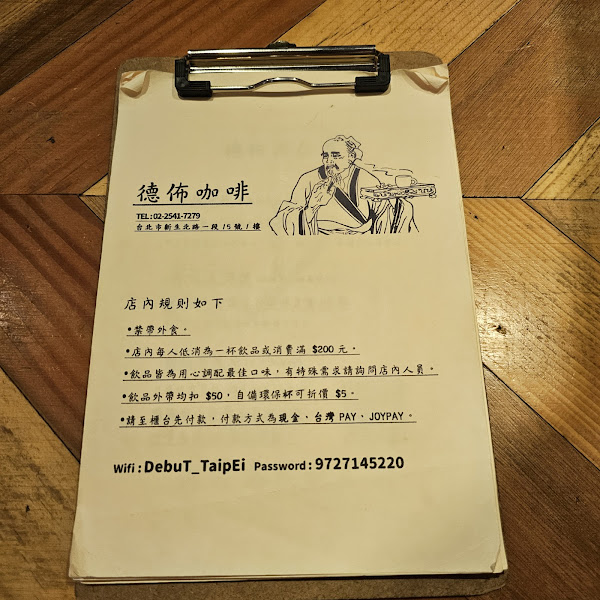 德佈咖啡
TEL:02-2541-7279
台北市新生北路一段15號1樓
店內規則如下
•禁帶外食。
•店內每人低消為一杯飲品或消費滿 $200 元。
•飲品皆為用心調配最佳口味,有特殊需求請詢問店內人員。
•飲品外帶均扣 $50,自備環保杯可折價 $5。
•請至櫃台先付款,付款方式為現金、台灣 PAY、JOYPAY。
Wifi : DebuT_TaipEi Password : 9727145220